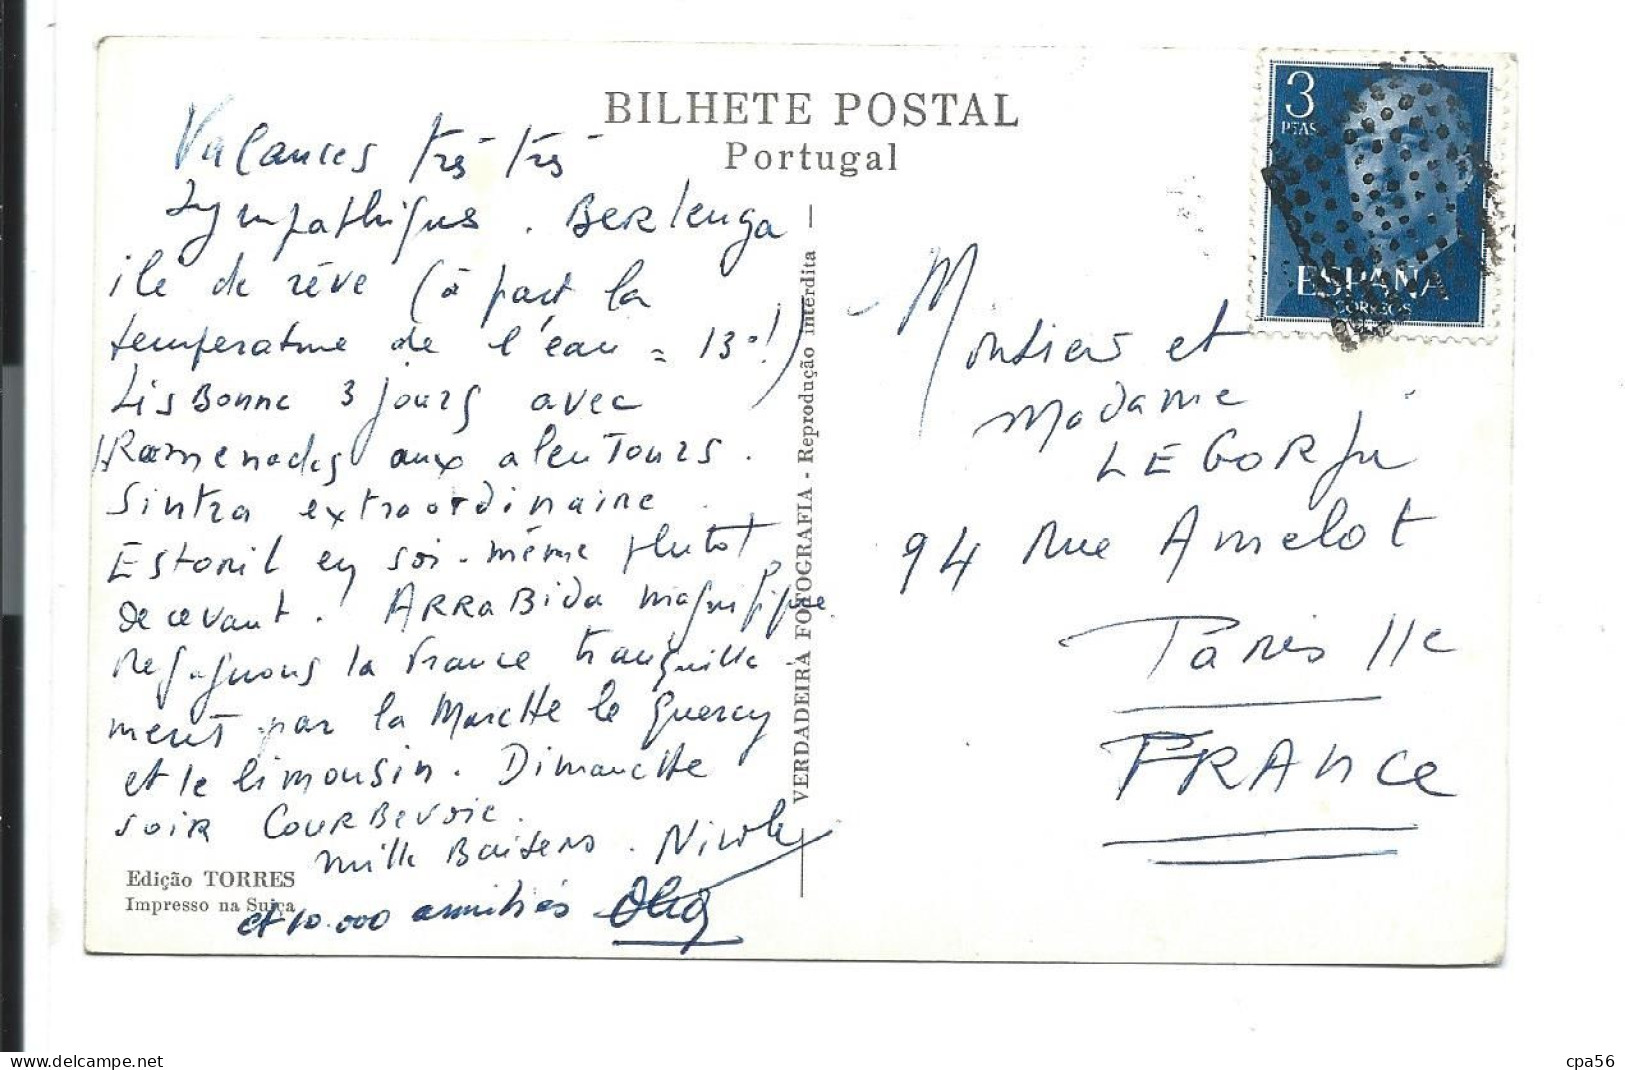 BILHETE POSTAL
Portugal
3
PTAS
ESPAÑA
CORREOS
Vacances très très
sympathiques. Berlenga
ile de rêve (à part la
temperature de l'eau = 13°!)
LisBonne 3 jours avec
PRomenades aux alenTours.
Sintra extraordinaire.
Estoril en soi-même plutôt
decevant. ARRABida magnifique.
Regagnons la France tranquille-
ment par la Marche le Quercy
et le limousin. Dimanche
soir COURBevoie.
mille Baisers. Nicole
et 10.000 amitiés Olga
Monsieur et
Madame
LEGORJU
94 Rue Amelot
Paris 11e
FRAnce
VERDADEIRA FOTOGRAFIA - Reprodução interdita
Edição TORRES
Impresso na Suiça
cpa56